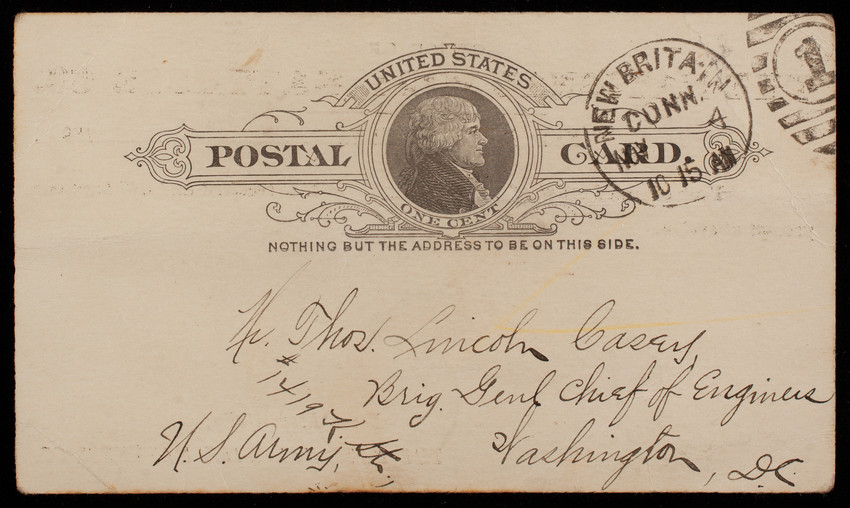 UNITED STATES
POSTAL CARD.
ONE CENT
NOTHING BUT THE ADDRESS TO BE ON THIS SIDE.
NEW BRITAIN
CONN.
4
10 15 AM
1
Thos. Lincoln Casey,
Brig. Genl Chief of Engineers
# 1419 K St.,
U.S. Army,
Washington, D.C.